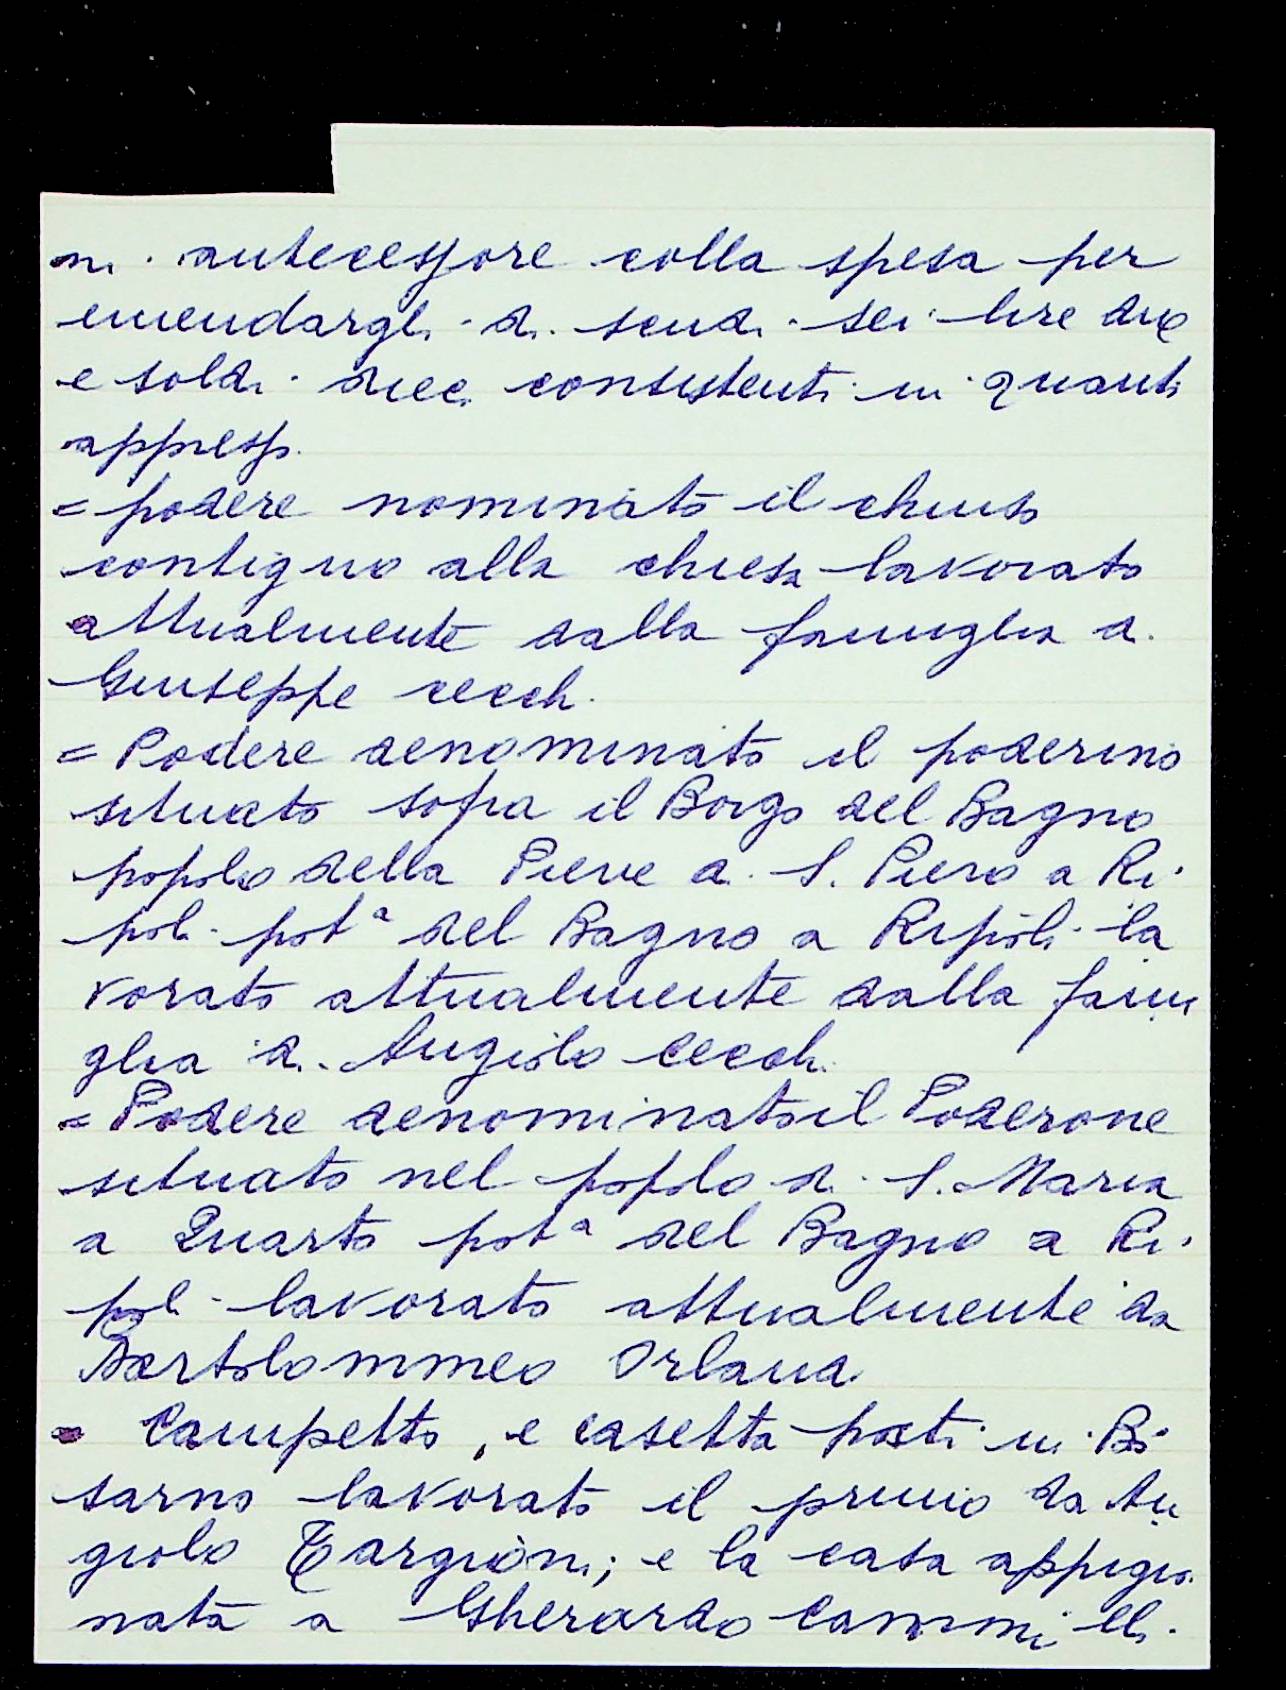 ni antecessore colla spesa per
emendargli di scudi sei lire due
e soldi dieci consistenti in quanti
appresso
= podere nominato il chiuso
contiguo alla chiesa lavorato
attualmente dalla famiglia di
Giuseppe Cecchi
= Podere denominato il poderino
situato sopra il Borgo del Bagno
popolo della Pieve di S. Piero a Ri-
poli potª del Bagno a Ripoli la
vorato attualmente dalla fami
glia di Angiolo Cecchi
= Podere denominato il Poderone
situato nel popolo di S. Maria
a Quarto potª del Bagno a Ri-
poli lavorato attualmente da
Bartolommeo Orlandi
Campetto, e casetta posti in Bi-
sarno lavorato il primo da An
giolo Targioni; e la casa appigio
nata a Gherardo Cammilli.